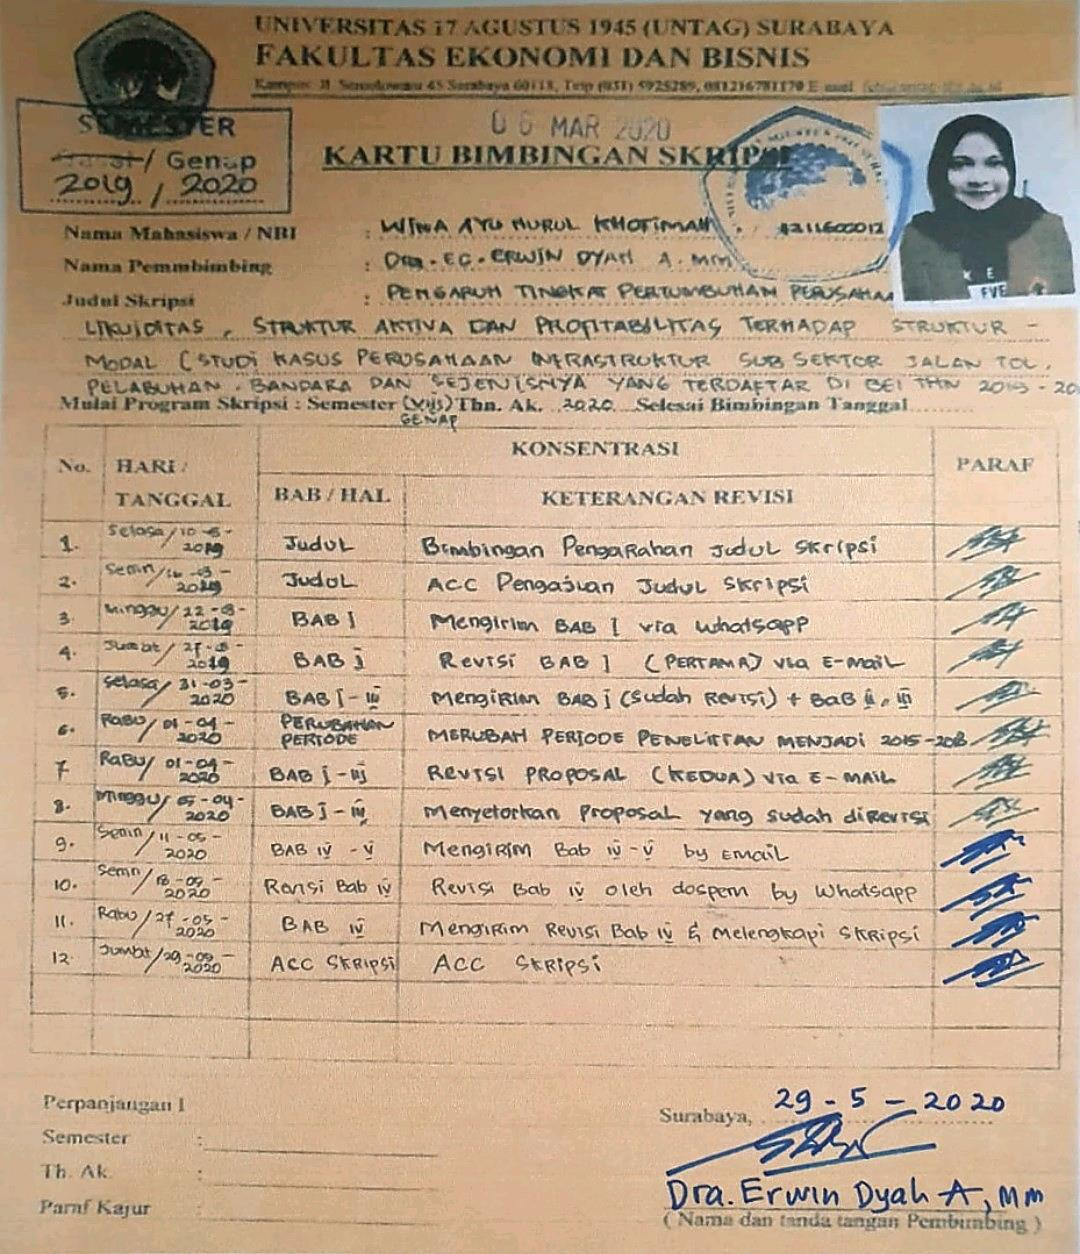 UNIVERSITAS 17 AGUSTUS 1945 (UNTAG) SURABAYA
FAKULTAS EKONOMI DAN BISNIS
Kampus: Jl. Semolowaru 45 Surabaya 60118, Telp (031) 5925289, 081216781170 E-mail
SEMESTER
Gasal / Genap
2019 / 2020
06 MAR 2020
KARTU BIMBINGAN SKRIPSI
Nama Mahasiswa / NBI : WINA AYU NURUL KHOTIMAH / 1211600012
Nama Pemmbimbing : Dra. EC. ERWIN DYAH A. MM
Judul Skripsi : PENGARUH TINGKAT PERTUMBUHAN PERUSAHAA
LIKUIDITAS, STRUKTUR AKTIVA DAN PROFITABILITAS TERHADAP STRUKTUR -
MODAL (STUDI KASUS PERUSAHAAN INFRASTRUKTUR SUB SEKTOR JALAN TOL,
PELABUHAN, BANDARA DAN SEJENISNYA YANG TERDAFTAR DI BEI THN
Mulai Program Skripsi : Semester (VIII) Thn. Ak. 2020 Selesai Bimbingan Tanggal
GENAP
No. HARI / TANGGAL KONSENTRASI PARAF
BAB / HAL KETERANGAN REVISI
1. Selasa / 2019 Judul Bimbingan Pengarahan Judul Skripsi
2. Senin / 2019 Judul ACC Pengajuan Judul Skripsi
3. Minggu / 2019 BAB I Mengirim BAB I via Whatsapp
4. Jumat / 2019 BAB I Revisi BAB I (PERTAMA) via E-Mail
5. Selasa / 31-03-2020 BAB I - III Mengirim BAB I (Sudah Revisi) + BaB II, III
6. RABU / 01-04-2020 PERUBAHAN PERIODE MERUBAH PERIODE PENELITIAN MENJADI 2015-2018
7 RABU / 01-04-2020 BAB I - III REVISI PROPOSAL (KEDUA) via E-MAIL
8. Minggu / 05-04-2020 BAB I - III Menyetorkan Proposal yang sudah direvisi
9. Senin / 11-05-2020 BAB IV - V Mengirim Bab IV - V by Email
10. Senin / 18-05-2020 Revisi Bab IV Revisi Bab IV oleh dospem by Whatsapp
11. Rabu / 27-05-2020 BAB IV Mengirim Revisi Bab IV & Melengkapi Skripsi
12. Jumat / 29-05-2020 ACC SKRIPSI ACC SKRIPSI
Perpanjangan I
Semester :
Th. Ak. :
Paraf Kajur :
Surabaya, 29 - 5 - 2020
Dra. Erwin Dyah A, MM
( Nama dan tanda tangan Pembimbing )